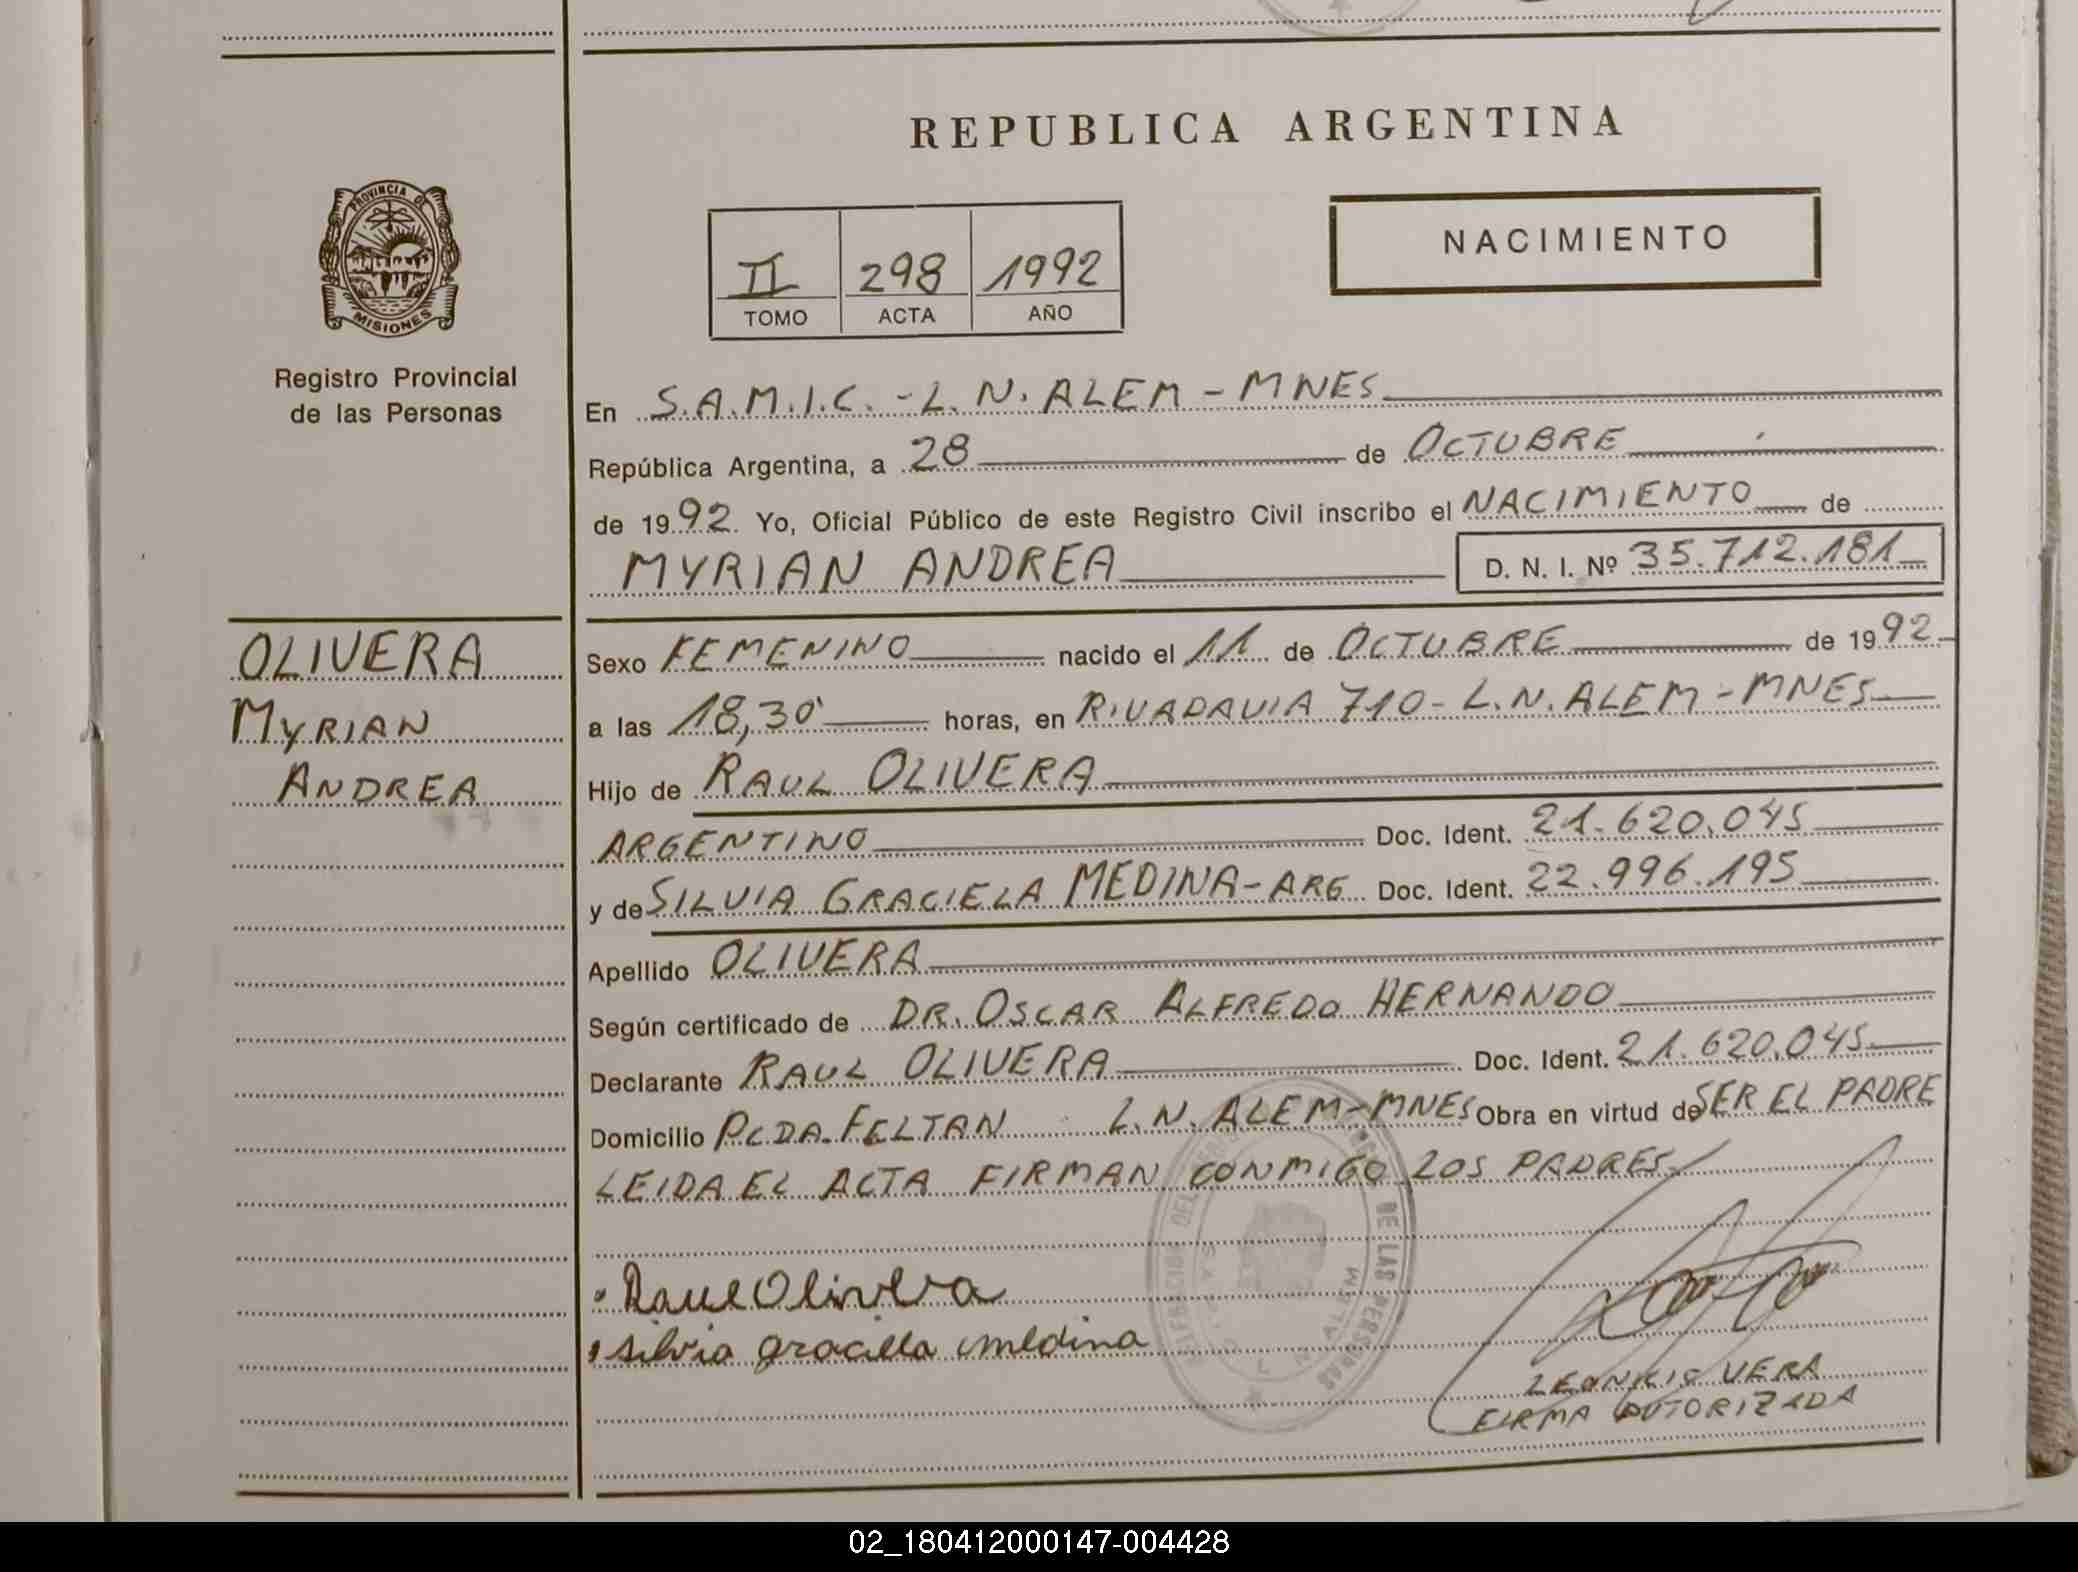 REPUBLICA ARGENTINA
PROVINCIA DE
MISIONES
Registro Provincial
de las Personas
II 298 1992
TOMO ACTA AÑO
NACIMIENTO
En S.A.M.I.C. - L. N. ALEM - MNES
República Argentina, a 28 de OCTUBRE
de 1992. Yo, Oficial Público de este Registro Civil inscribo el NACIMIENTO de
MYRIAN ANDREA D. N. I. Nº 35.712.181
OLIVERA
MYRIAN
ANDREA
Sexo FEMENINO nacido el 11 de OCTUBRE de 1992
a las 18,30 horas, en RIVADAVIA 710 - L.N. ALEM - MNES
Hijo de RAUL OLIVERA
ARGENTINO Doc. Ident. 21.620.045
y de SILVIA GRACIELA MEDINA - ARG Doc. Ident. 22.996.195
Apellido OLIVERA
Según certificado de DR. OSCAR ALFREDO HERNANDO
Declarante RAUL OLIVERA Doc. Ident. 21.620.045
Domicilio PCDA. FELTAN L.N. ALEM - MNES Obra en virtud de SER EL PADRE
LEIDA EL ACTA FIRMAN CONMIGO LOS PADRES
DE LAS PERSONAS
N. ALEM
Raul Olivera
silvia graciela medina
VERA
FIRMA AUTORIZADA
02_180412000147-004428